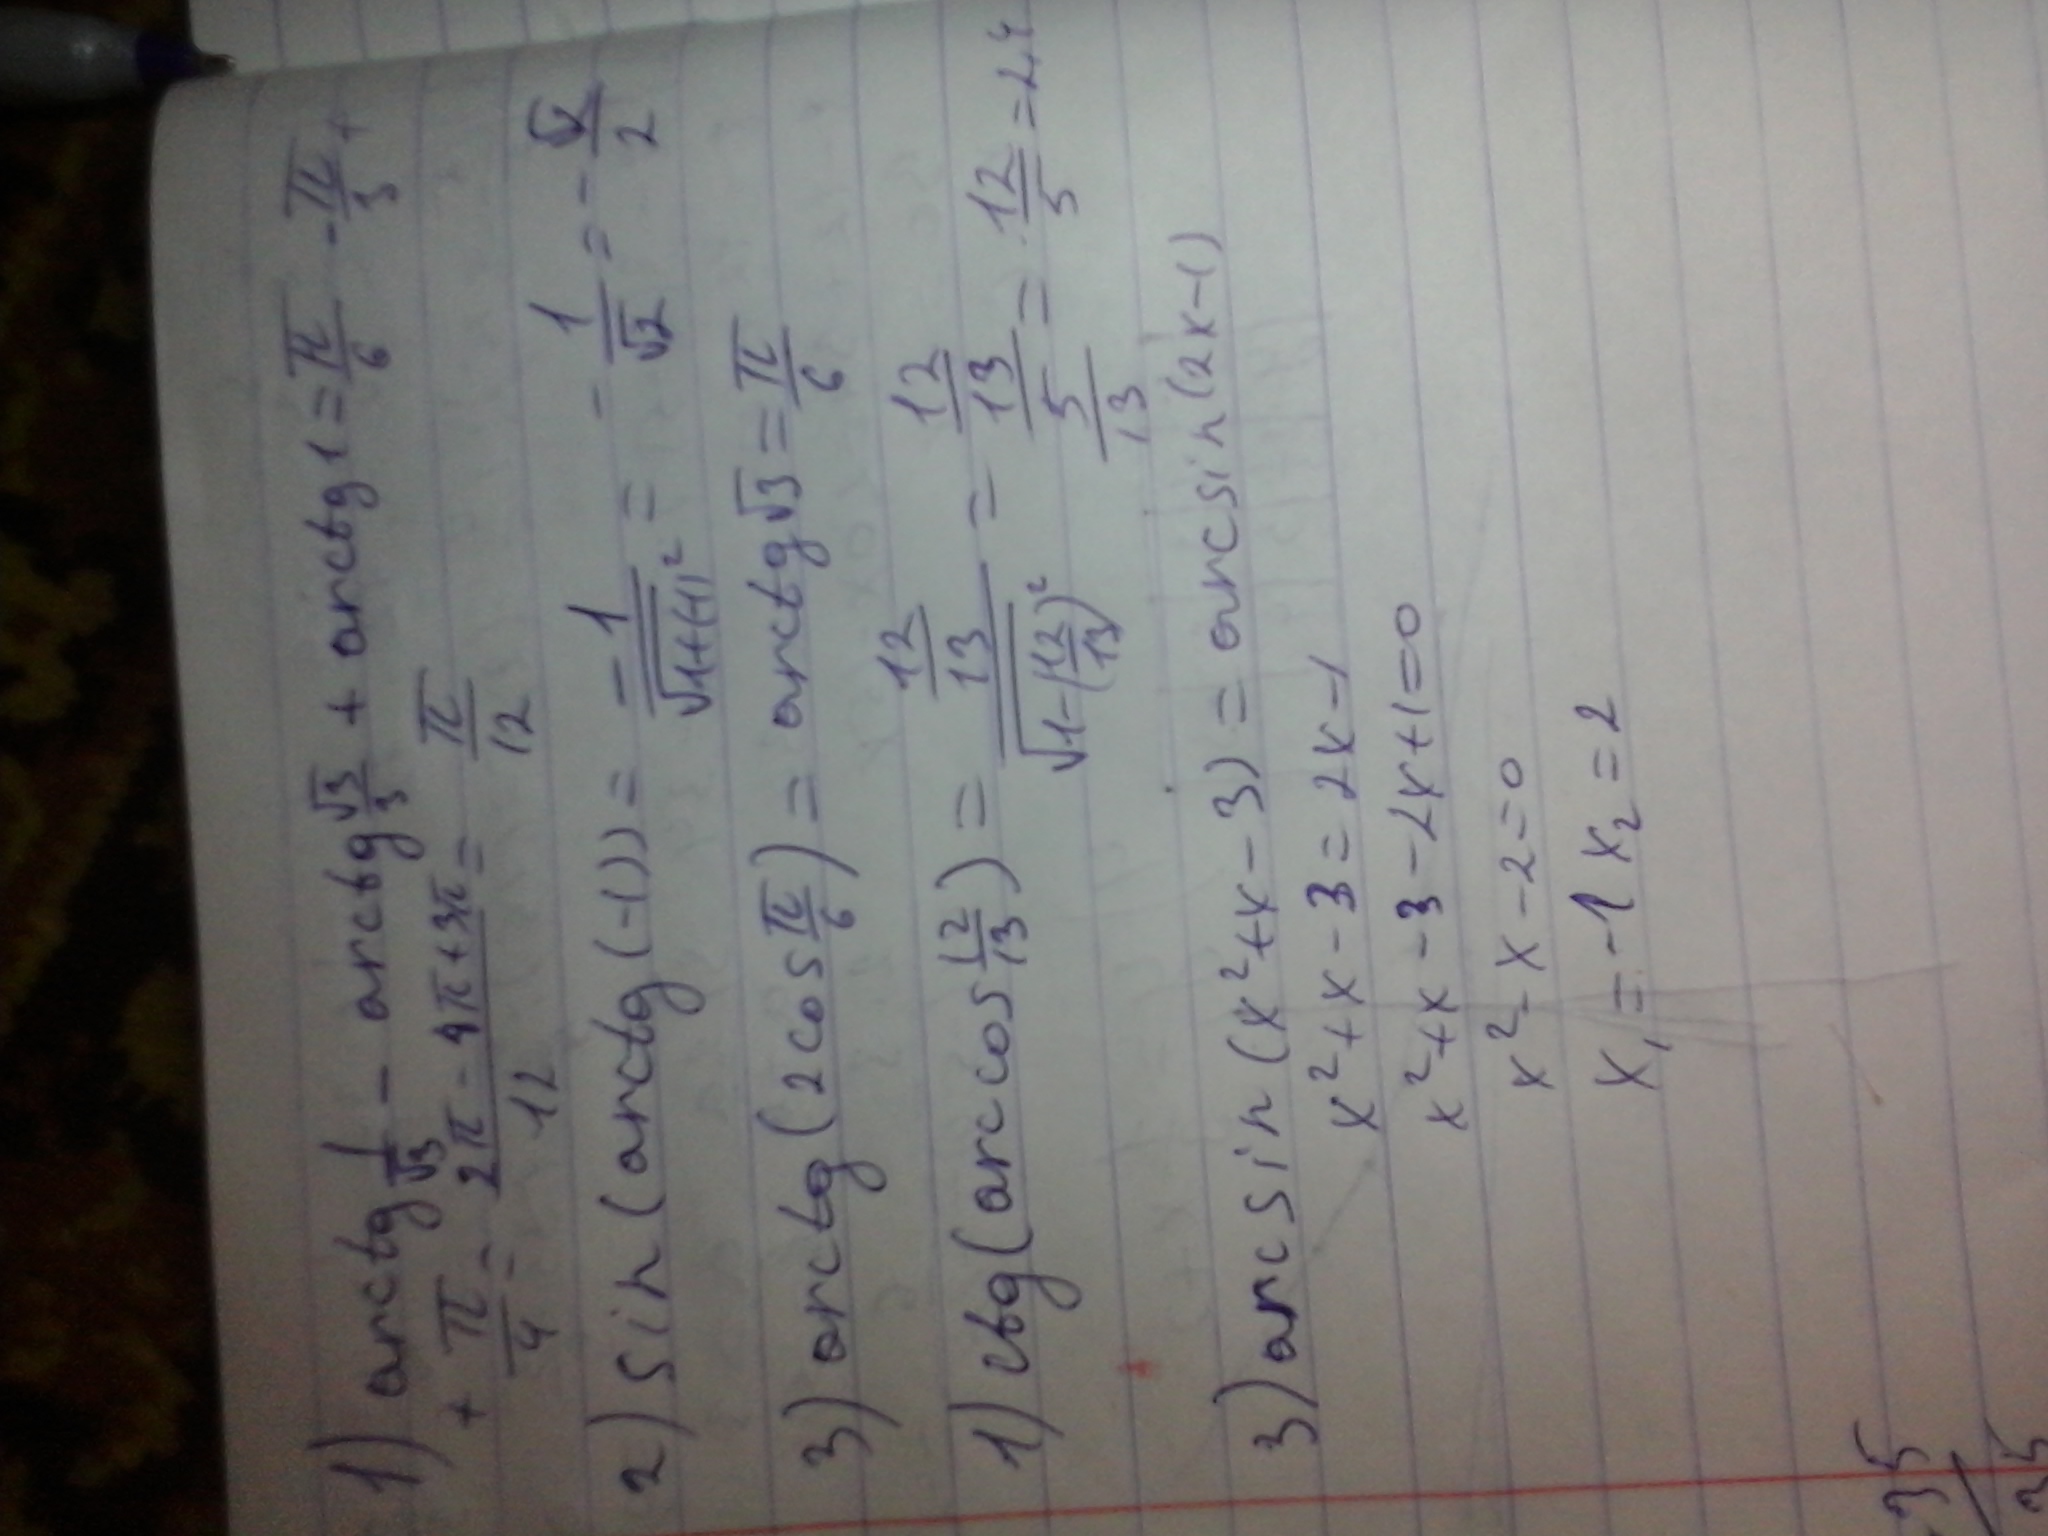 1) arcctg 1/√3 - arcctg √3/3 + arcctg 1 = π/6 - π/3 +
+ π/4 = (2π - 4π + 3π)/12 = π/12
2) sin(arcctg(-1)) = -1/√(1+(-1)²) = -1/√2 = -√2/2
3) arcctg(2cos π/6) = arcctg √3 = π/6
1) ctg(arccos 12/13) = (12/13)/√(1-(12/13)²) = (12/13)/(5/13) = 12/5 = 2,4
3) arcsin(x²+x-3) = arcsin(2x-1)
x²+x-3=2x-1
x²+x-3-2x+1=0
x²-x-2=0
x₁=-1 x₂=2
35